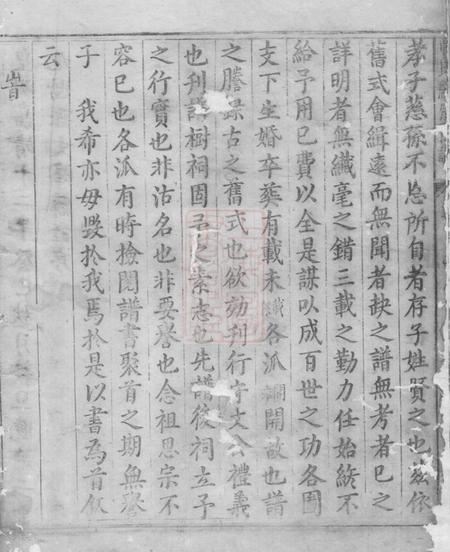 孝子慈孫不忘所自者存子姓賢之也茲依
舊式會緝遠而無聞者缺之譜無考者已之
詳明者無纖毫之錯三載之勤力任始終不
給予用已費以全是謀以成百世之功各圖
支下生婚卒葬有載未各派開故也譜
之謄錄古之舊式也欲刊行守文公禮義
也刊譜樹祠固予之素志也先譜後祠立予
之行實也非沽名也非要譽也念祖思宗不
容已也各派有時撿閱譜書聚首之期無譽
子我希亦毋毀於我焉於是以書為首似
云